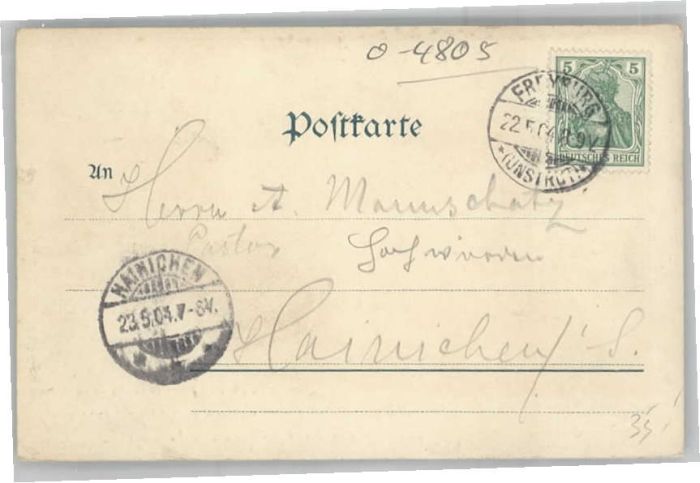 o-4805
5 5
FREYBURG
22.5.04. 8-9V.
*(UNSTRUT)*
DEUTSCHES REICH
Postkarte
An Herrn A. Mannschatz
Pastor Hochwürden
HAINICHEN
23.5.04.7-8V.
Hainichen i. S.
35,-